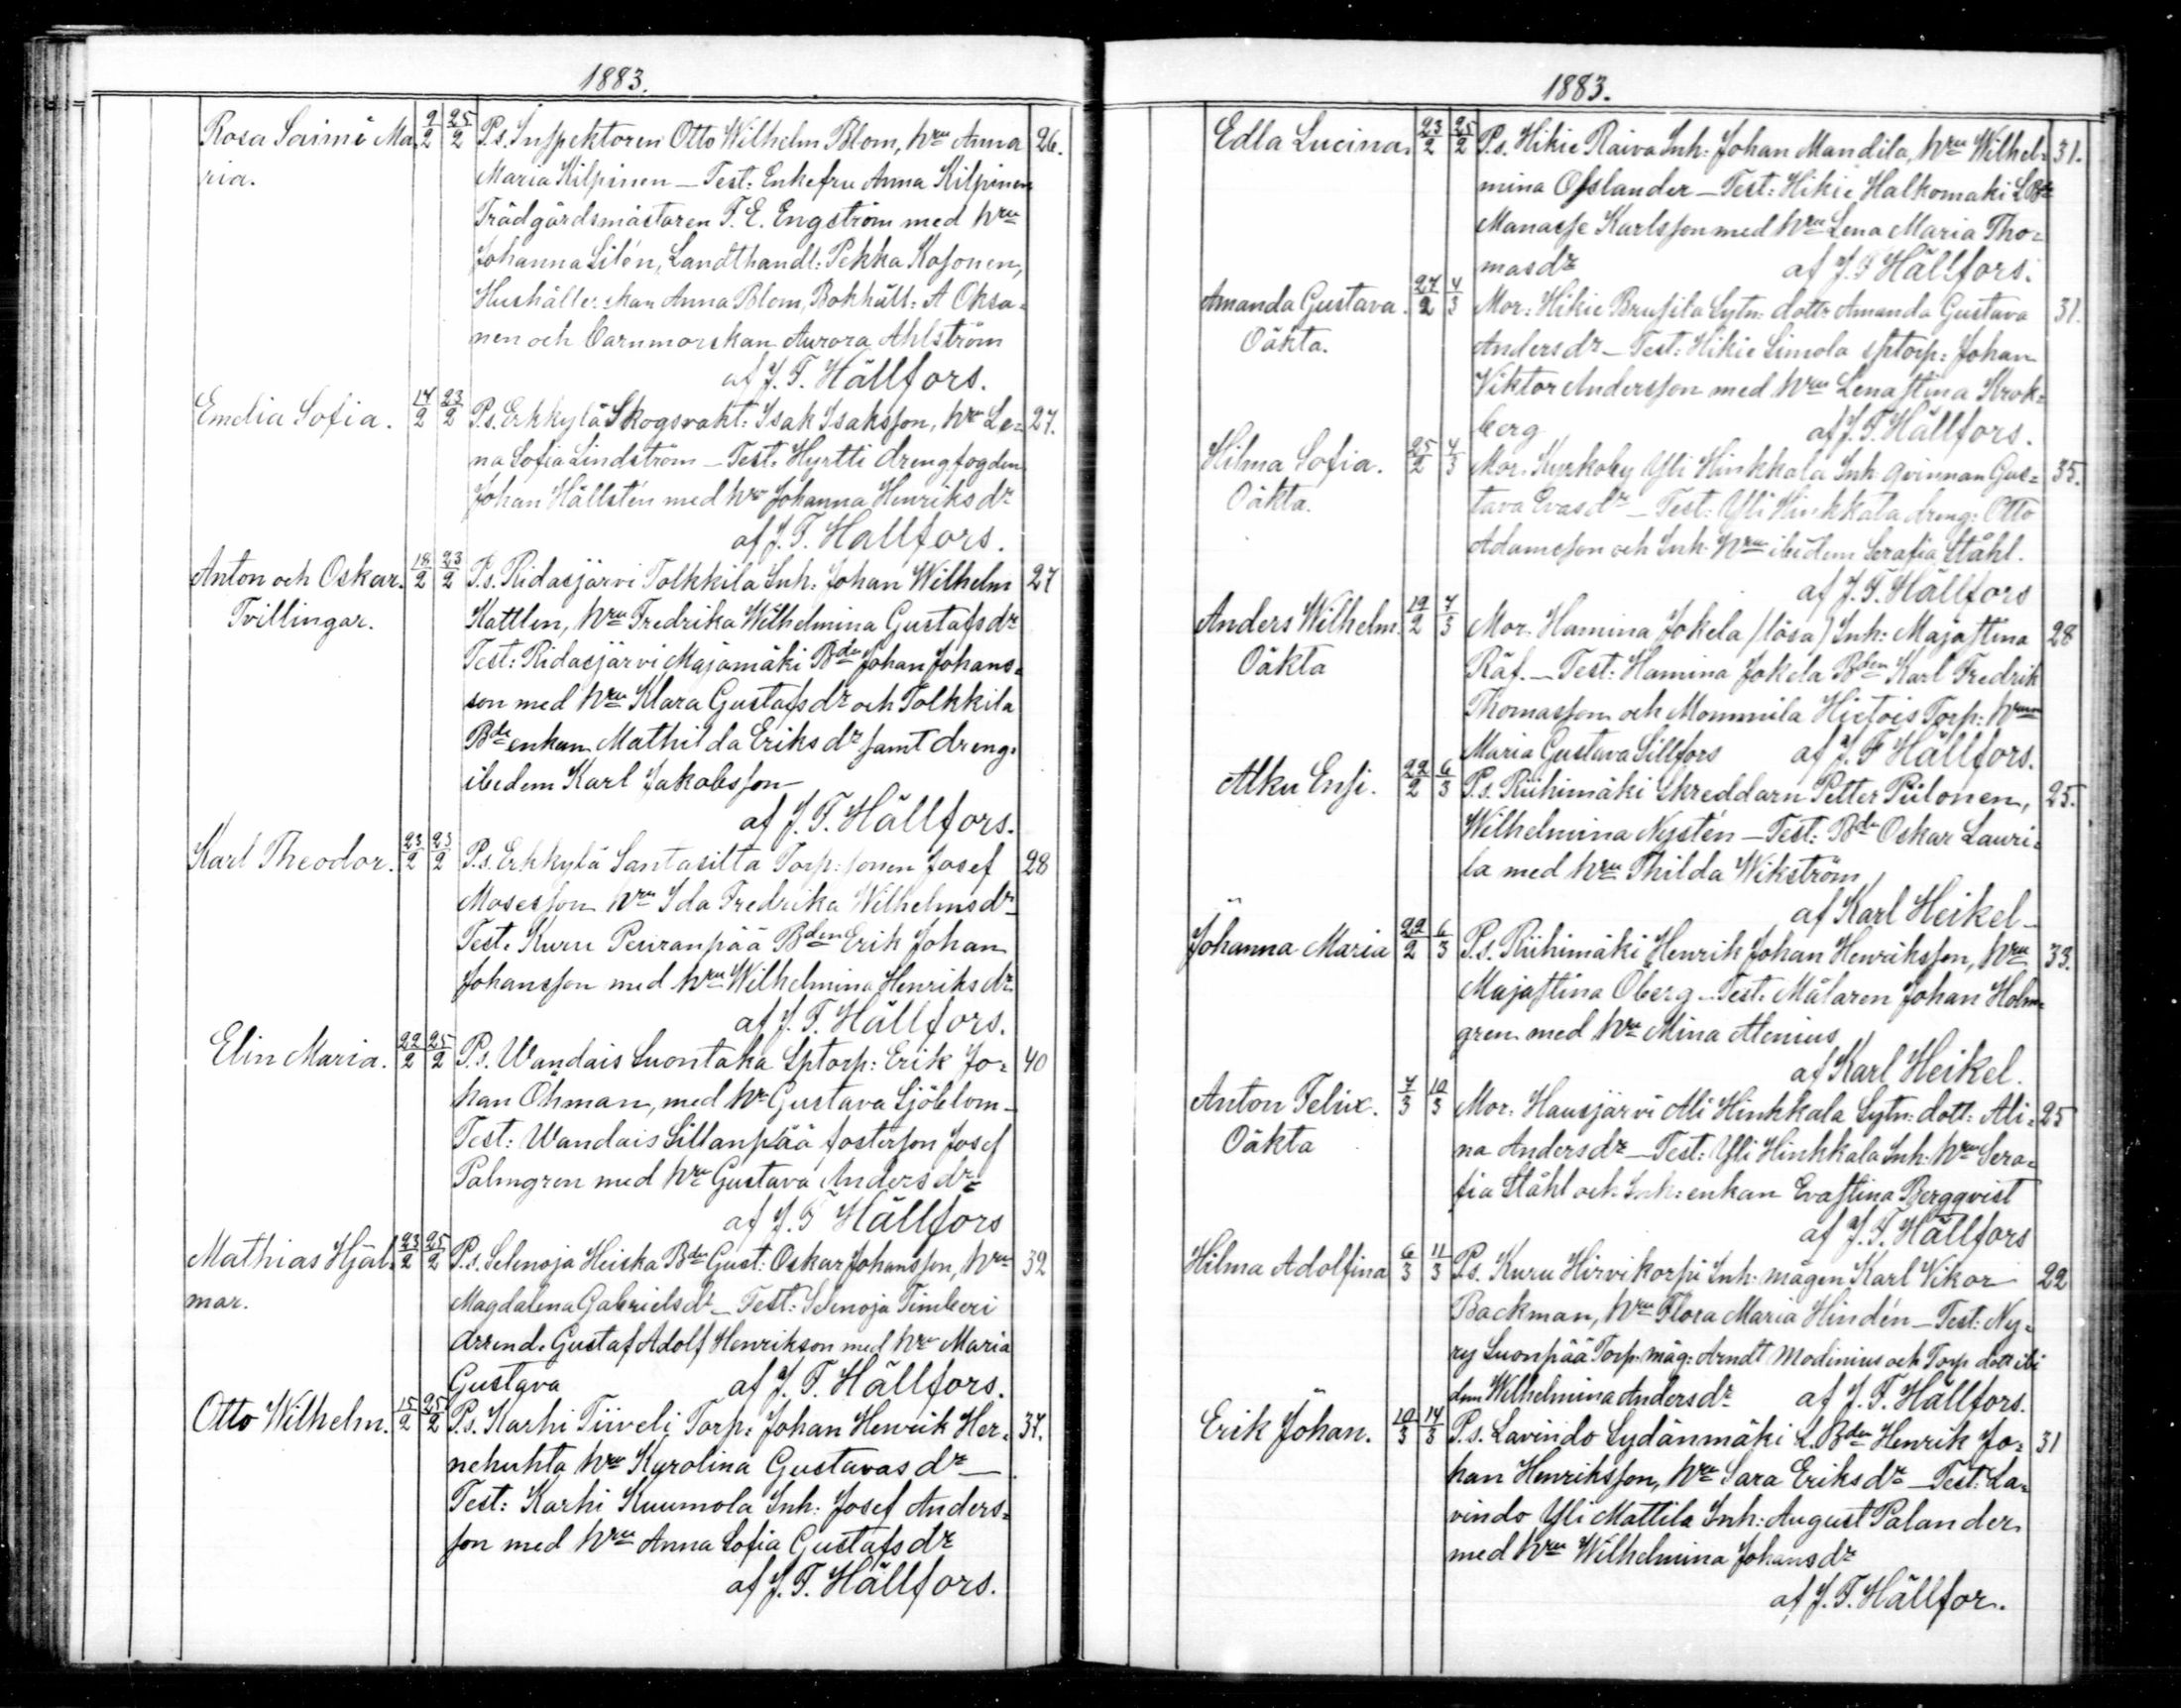 1883.
Rosa Saimi Ma 9/2 25/2 P.s. Inspektoren Otto Wilhelm Blom, hru Anna 26.
ria. Maria Kilpinen — Test: Enkefru Anna Kilpinen
Trädgårdsmästaren F. E. Engström med hru
Johanna Silén, Landthandl: Pekka Kosonen,
Hushåller:skan Anna Blom, Bokhåll: A Oksa=
nen och barnmorskan Aurora Ahlström
af J. F. Hällfors.
Emelia Sofia. 14/2 23/2 P.s. Erkkylä Skogsvakt: Isak Isaksson, hru Le= 27.
na Sofia Lindström — Test. Hyrtti drengfogden
Johan Hällstén med hru Johanna Henriks dr
af J. F. Hällfors.
Anton och Oskar. 18/2 23/2 P.s. Ridasjärvi Tolkkila Inh: Johan Wilhelm 27
Tvillingar. Kattlen, hru Fredrika Wilhelmina Gustafs dr
Test: Ridasjärvi Majamäki Bdn Johan Johans=
son med hru Klara Gustafs dr och Tolkkila
Bde enkan Mathilda Eriks dr samt dreng.
ibidem Karl Jakobsson
af J. F. Hällfors.
Karl Theodor. 23/2 23/2 P.s. Erkkylä Santasilta Torp:sonen Josef 28
Mosesson hru Ida Fredrika Wilhelms dr
Test. Kuru Penranpää Bden Erik Johan
Johansson med hru Wilhelmina Henriks dr.
af J. F. Hällfors.
Elin Maria. 22/2 25/2 P.s. Wandais Luontaka Sptorp: Erik Jo= 40
han Öhman, med hru Gustava Sjöblom —
Test: Wandais Sillanpää fosterson Josef
Palmgren med hru Gustava Anders dr
af J. F Hällfors
Mathias Hjal= 23/2 25/2 P.s. Selenoja Heiska Bdn Gust: Oskar Johansson, hru 32
mar. Magdalena Gabriels dr — Test: Selenoja Timberi
Arrend. Gustaf Adolf Henrikson med hru Maria
Gustava af J. F. Hällfors.
Otto Wilhelm. 15/2 25/2 P.s. Karhi Tiiveli Torp: Johan Henrik Her= 37.
nehuhta hru Karolina Gustavas dr —
Test: Karhi Kuumola Inh: Josef Anders=
son med hru Anna Sofia Gustafs dr
af J. F. Hällfors.
1883.
Edla Lucina. 23/2 25/2 P.s. Hikie Raiva Inh: Johan Mandila, hru Wilhel= 31.
mina Osslander — Test: Hikie Halkomäki
Manasse Karlsson med hru Lena Maria Tho=
mas dr af J. F Hällfors.
Amanda Gustava. 27/2 4/3 Mor: Hikie Brusila Sytn: dottr Amanda Gustava 31.
Oäkta. Anders dr — Test: Hikie Simola sptorp: Johan
Viktor Andersson med hru Lenastina Krok=
berg af J. F. Hällfors.
Hilma Sofia. 25/2 4/3 Mor. Kyrkoby Yli Hinkkala Inh qvinnan Gus= 35.
Oäkta. tava Evas dr — Test: Yli Hinkkala dreng: Otto
Adamsson och Inh. hru ibidem Serafia Ståhl.
af J. F. Hällfors
Anders Wilhelm. 19/2 7/3 Mor. Hamina Jokela /lösa/ Inh: Majastina 28
Oäkta Räf. — Test: Hamina Jokela Bden Karl Fredrik
Thomasson och Mommila Hietois Torp: hrun
Maria Gustava Sillfors af J. F Hällfors.
Alku Ensi. 22/2 6/3 P.s. Riihimäki Skreddarn Petter Piilonen, 25.
Wilhelmina Nystén — Test: Bdn Oskar Lauri=
la med hru Thilda Wikström
af Karl Heikel —
Johanna Maria 22/2 6/3 P.s. Riihimäki Henrik Johan Henriksson, hru 33.
Majastina Öberg — Test. Målaren Johan Holm=
gren med hru Mina Alenius
af Karl Heikel.
Anton Felix. 7/3 10/3 Mor. Hausjärvi Ali Hinkkala Sytn: dott: Ali= 25
Oäkta na Anders dr — Test: Yli Hinkkala Inh. hru Sera=
fia Ståhl och Inh: enkan Evastina Bergqvist
af J. F. Hällfors
Hilma Adolfina 6/3 11/3 P.s. Kuru Hirvikorpi Inh: mågen Karl Vikor 22
Backman, hru Flora Maria Hindén — Test: Ny=
ry Luonpää Torp. måg: Arndt Modinius och Torp dott ibi
dem Wilhelmina Anders dr. af J. F. Hällfors.
Erik Johan. 10/3 14/3 P.s. Lavindo Sydänmäki L. Bden Henrik Jo= 31
han Henriksson, hru Sara Eriks dr — Test: La=
vindo Yli Mattila Inh: August Palander
med hru Wilhelmina Johans dr
af J. F. Hällfor.